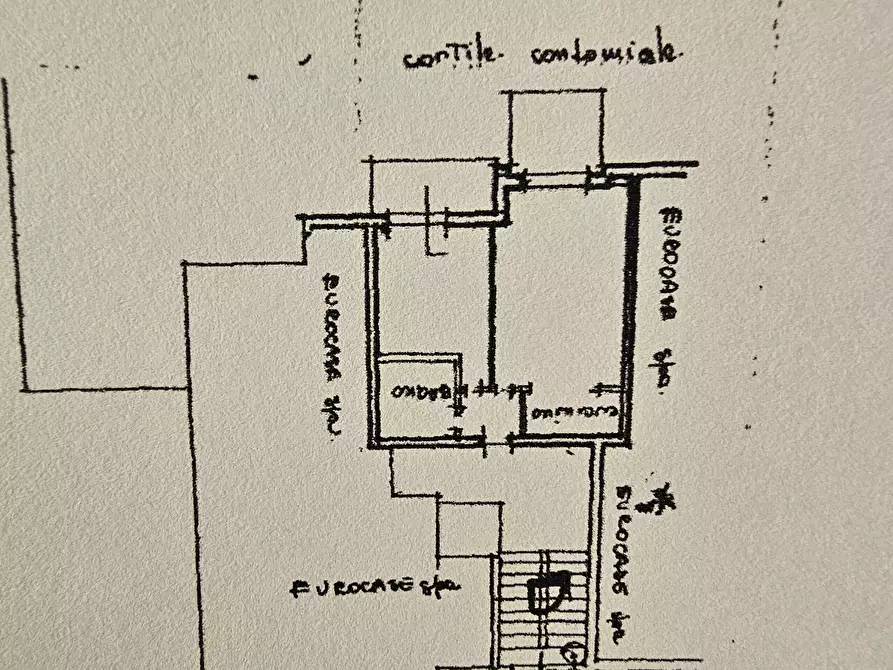 cortile condominiale
EUROCASE Spa.
EUROCASA Spa.
BAGNO
cucinino
EUROCASE Spa
EUROCASE Spa
D